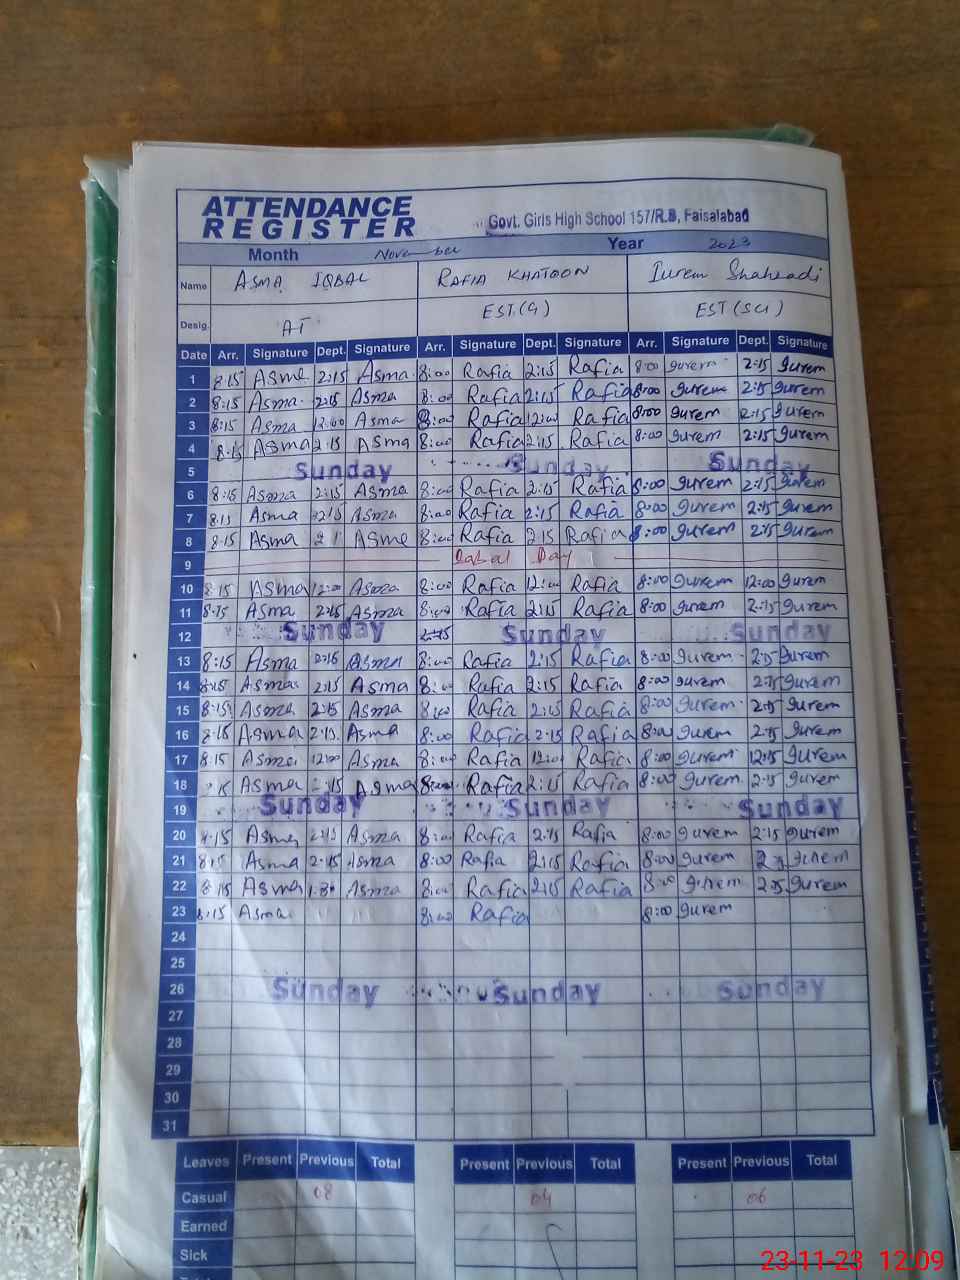 ATTENDANCE REGISTER Govt. Girls High School 157/R.B, Faisalabad
Month November Year 2023
Name ASMA IQBAL RAFIA KHATOON Iurem Shahzadi
Desig. AT EST(G) EST(SCI)
Date Arr. Signature Dept. Signature Arr. Signature Dept. Signature Arr. Signature Dept. Signature
1 8:15 Asma 2:15 Asma 8:00 Rafia 2:15 Rafia 8:00 gurem 2:15 gurem
2 8:15 Asma 2:15 Asma 8:00 Rafia 2:15 Rafia 8:00 gurem 2:15 gurem
3 8:15 Asma 12:00 Asma 8:00 Rafia 12:00 Rafia 8:00 gurem 2:15 gurem
4 8:15 Asma 2:15 Asma 8:00 Rafia 2:15 Rafia 8:00 gurem 2:15 gurem
5 Sunday Sunday Sunday
6 8:15 Asma 2:15 Asma 8:00 Rafia 2:15 Rafia 8:00 gurem 2:15 gurem
7 8:15 Asma 2:15 Asma 8:00 Rafia 2:15 Rafia 8:00 gurem 2:15 gurem
8 8:15 Asma Asma 8:00 Rafia 2:15 Rafia 8:00 gurem 2:15 gurem
9 Iqbal Day
10 8:15 Asma 12:00 Asma 8:00 Rafia 12:00 Rafia 8:00 gurem 12:00 gurem
11 8:15 Asma 2:15 Asma 8:00 Rafia 2:15 Rafia 8:00 gurem 2:15 gurem
12 Sunday 2:15 Sunday Sunday
13 8:15 Asma 2:15 Asma 8:00 Rafia 2:15 Rafia 8:00 gurem 2:15 gurem
14 8:15 Asma 2:15 Asma 8:00 Rafia 2:15 Rafia 8:00 gurem 2:15 gurem
15 8:15 Asma 2:15 Asma 8:00 Rafia 2:15 Rafia 8:00 gurem 2:15 gurem
16 8:15 Asma 2:15 Asma 8:00 Rafia 2:15 Rafia 8:00 gurem 2:15 gurem
17 8:15 Asma 12:00 Asma 8:00 Rafia 12:00 Rafia 8:00 gurem 12:15 gurem
18 Asma 2:15 Asma 8:00 Rafia 2:15 Rafia 8:00 gurem 2:15 gurem
19 Sunday Sunday Sunday
20 8:15 Asma 2:15 Asma 8:00 Rafia 2:15 Rafia 8:00 gurem 2:15 gurem
21 8:15 Asma 2:15 Asma 8:00 Rafia 2:15 Rafia 8:00 gurem gurem
22 8:15 Asma 1:30 Asma 8:00 Rafia 2:15 Rafia 8:00 gurem 2:15 gurem
23 8:15 Asma 8:00 Rafia 8:00 gurem
24
25
26 Sunday Sunday Sunday
27
28
29
30
31
Leaves Present Previous Total Present Previous Total Present Previous Total
Casual 08 04 06
Earned
Sick
23-11-23 12:09